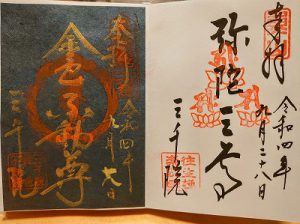 奉拝
令和四年
九月二十八日
弥陀三尊
三千院
奉拝
令和四年
九月
金色不動尊
三千院